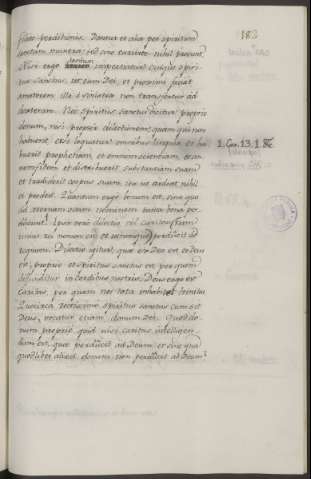 183
filios perditionis. Dantur et alia per spiritum
sanctum munera; sed sine caritate nihil prosunt.
Nisi ergo tantum impertiatur cuique spiri-
tus sanctus, ut eum Dei, et proximi faciat
amatorem ille a sinistra non transfertur ad
dexteram. Nec spiritus sanctus dicitur proprie
donum, nisi propter dilectionem, quam qui non
habuerit etsi loquatur omnibus linguis et ha-
buerit prophetiam et omnem scientiam, et om-
nem fidem et distribuerit substantiam suam
et tradiderit corpus suum ita ut ardeat nihil
ei prodest. Quantum ergo bonum est, sine quo
ad aeternam vitam neminem tanta bona per-
ducunt! Ipsa vero dilectio vel caritas (nam
unius rei nomen est utrumque) perducit ad
regnum. Dilectio igitur, quae ex Deo est et Deus
est, proprie et spiritus sanctus est per quem
diffunditur in cordibus nostris Deus
caritas, per quam nos tota inhabitet trinitas
Quocirca rectissime spiritus sanctus cum sit
Deus, vocatur etiam donum Dei. Quod do-
num proprie quid nisi caritas intelligen-
dum est, quae perducit ad Deum et sine qua
quodlibet aliud donum non perducit ad Deum?
1. Cor. 13. 1. &c.